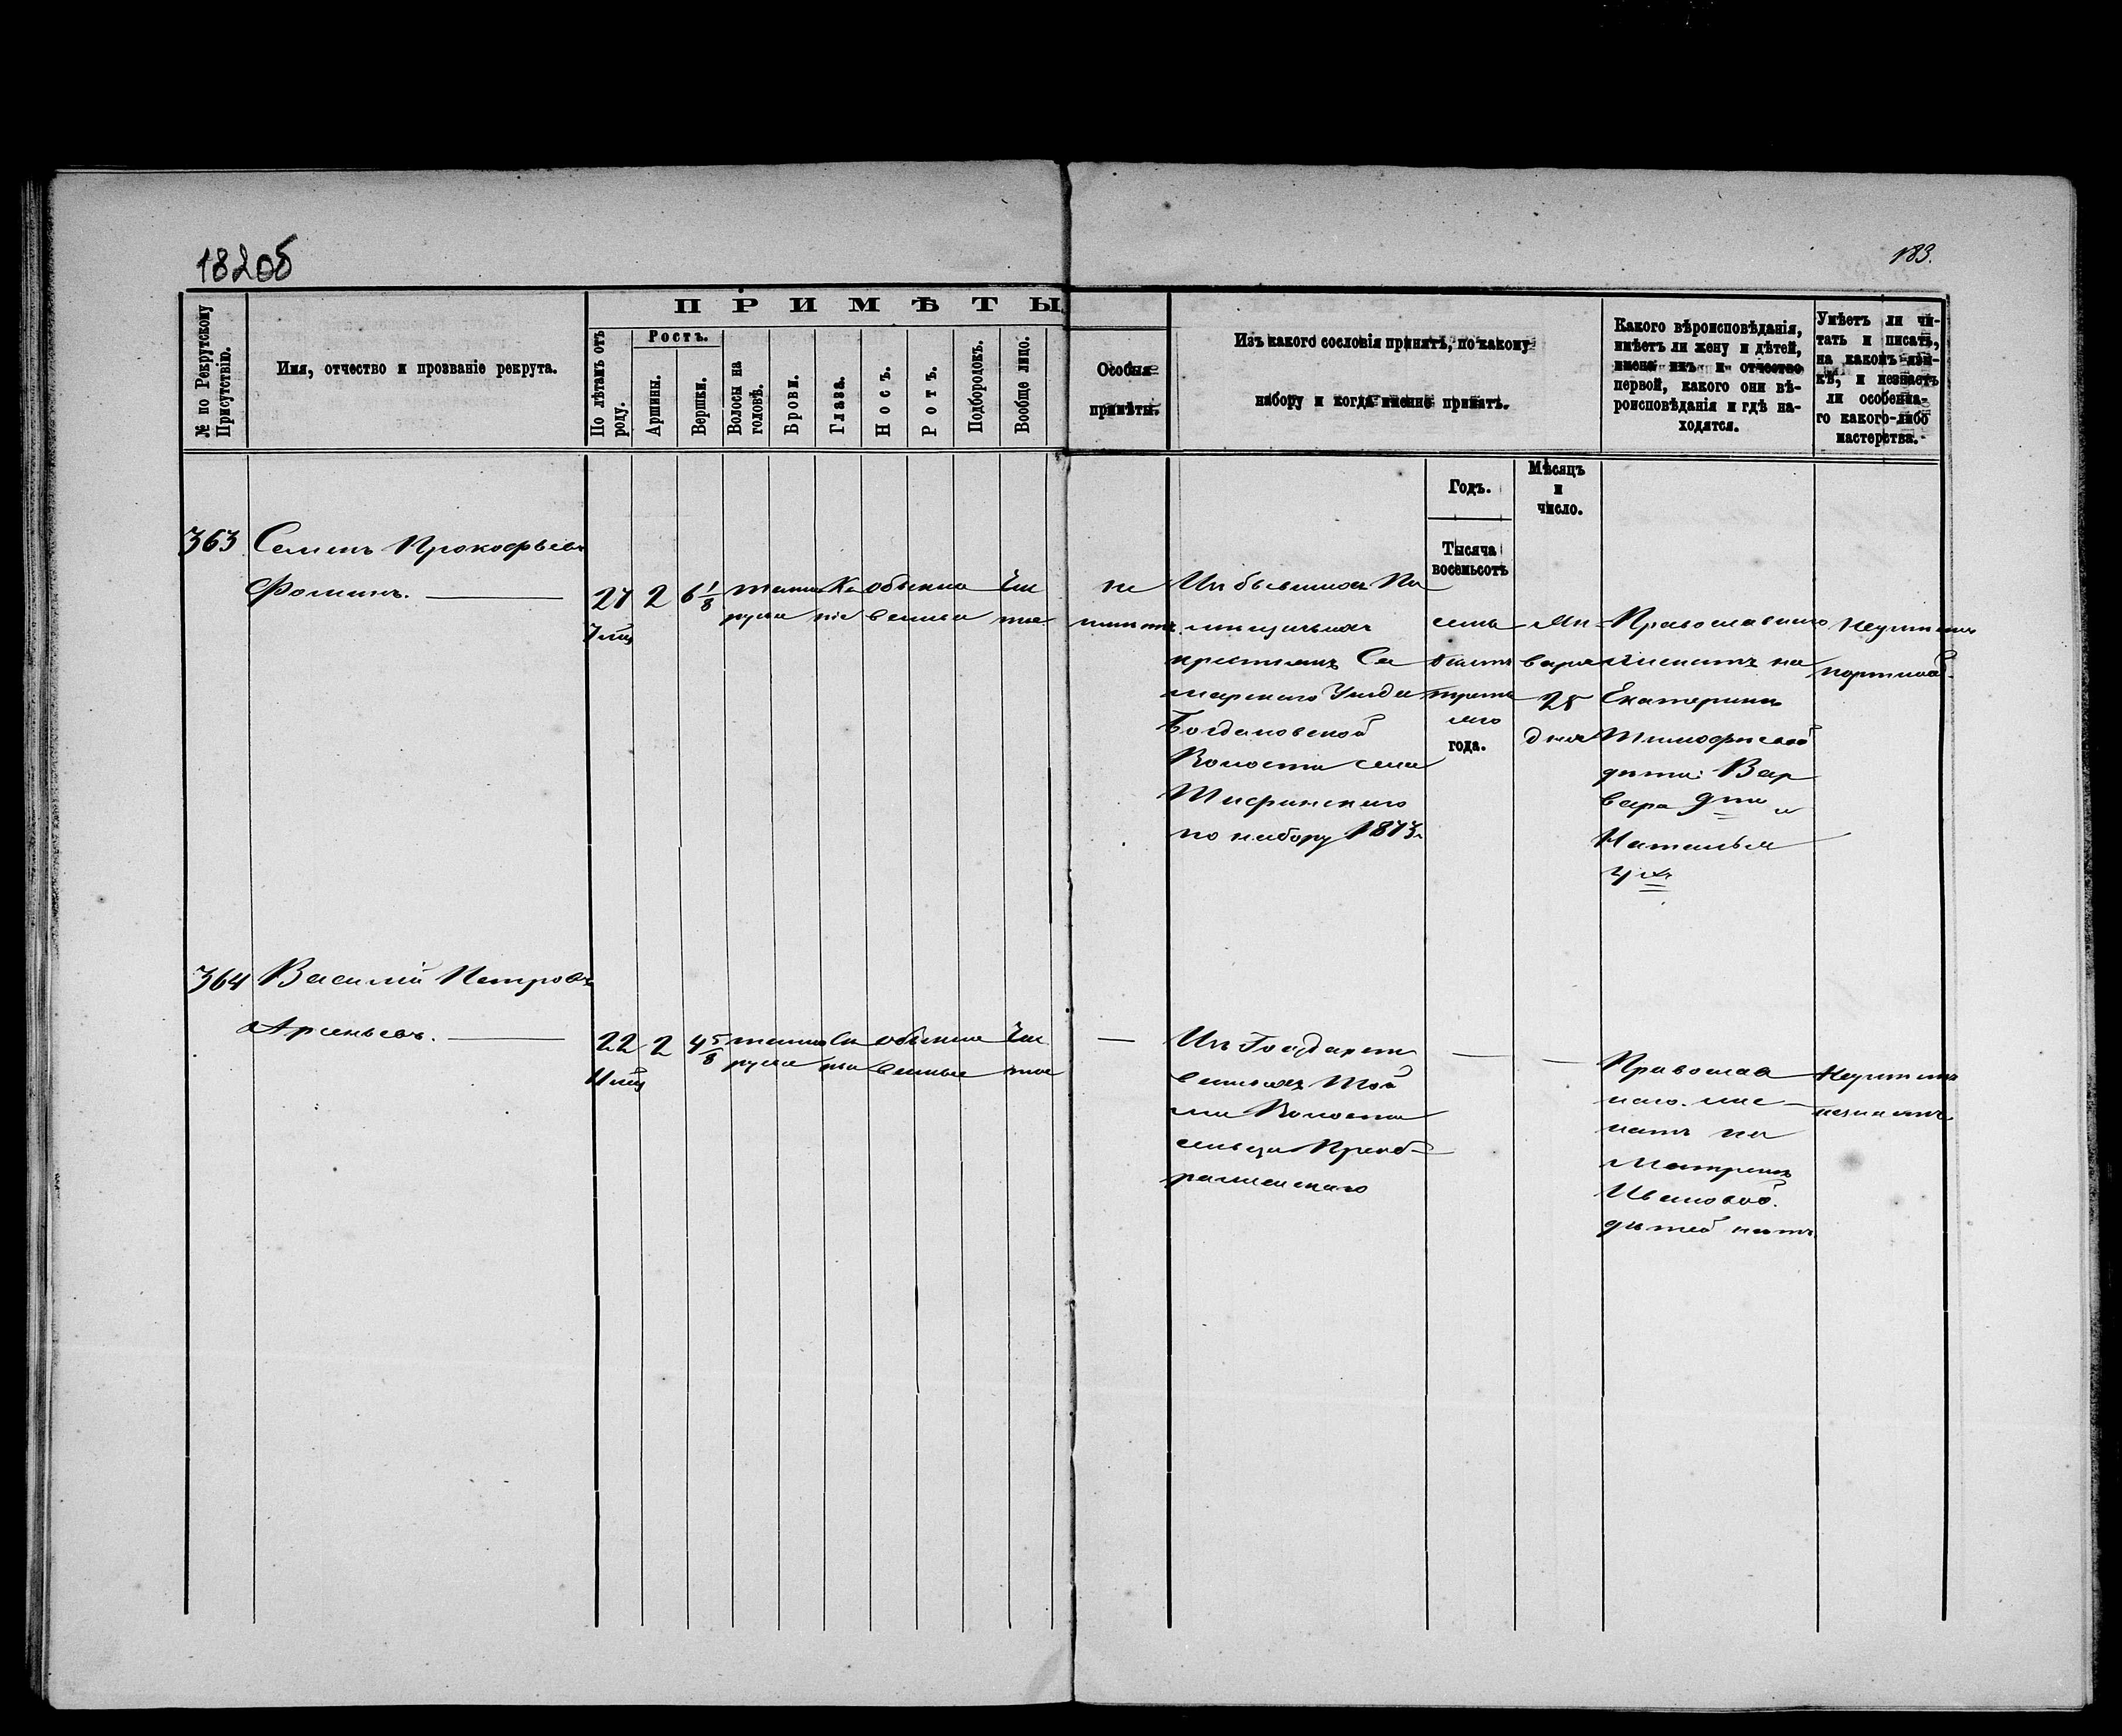 182об
183.
ПРИМѢТЫ
№ по Рекрутскому
Присутствію.
Имя, отчество и прозваніе рекрута.
По лѣтамъ отъ
роду.
Ростъ.
Аршины.
Вершки.
Волосы на
головѣ.
Брови.
Глаза.
Носъ.
Ротъ.
Подбородокъ.
Вообще лицо.
Особыя
примѣты.
Изъ какого сословія принятъ, по какому
набору и когда именно принятъ.
Какого вѣроисповѣданія,
имѣетъ ли жену и дѣтей,
имена ихъ и отчество
первой, какого они вѣ-
роисповѣданія и гдѣ на-
ходятся.
Умѣетъ ли чи-
тать и писать,
на какомъ язы-
кѣ, и незнаетъ
ли особенна-
го какого-либо
мастерства.
Годъ.
Мѣсяцъ
и
число.
Тысяча
восемьсотъ
363
Семенъ Прокофьевъ
Фоминъ.
27
7 мѣс
2
6 1/8
темно
русые
Ка
ріе
обыкно
венные
Чи
стое
не
имѣетъ.
Изъ бывшихъ По
мѣщичьихъ
крестьянъ Са
марскаго Уѣзда
Богдановской
Волости села
по набору 1873г.
семь
десятъ
третья
го
года.
Ян
варя
28
дня
Православнаго
женатъ на
Екатеринѣ
Тимофѣевой
дѣти: Вар
вара 9ти и
Наталья
4хъ
Неграмотенъ
портной.
364
Василій Петровъ
Арсеньевъ.
22
11 мѣс
2
4 5/8
темно
русые
Сѣ
рые
обыкно
венные
Чи
стое
Изъ Государст
венныхъ Той
же Волости
сельца Преоб-
раженскаго
Православ
наго. же
натъ на
Матренѣ
Ивановой.
дѣтей нѣтъ
Неграмотенъ
незнаетъ